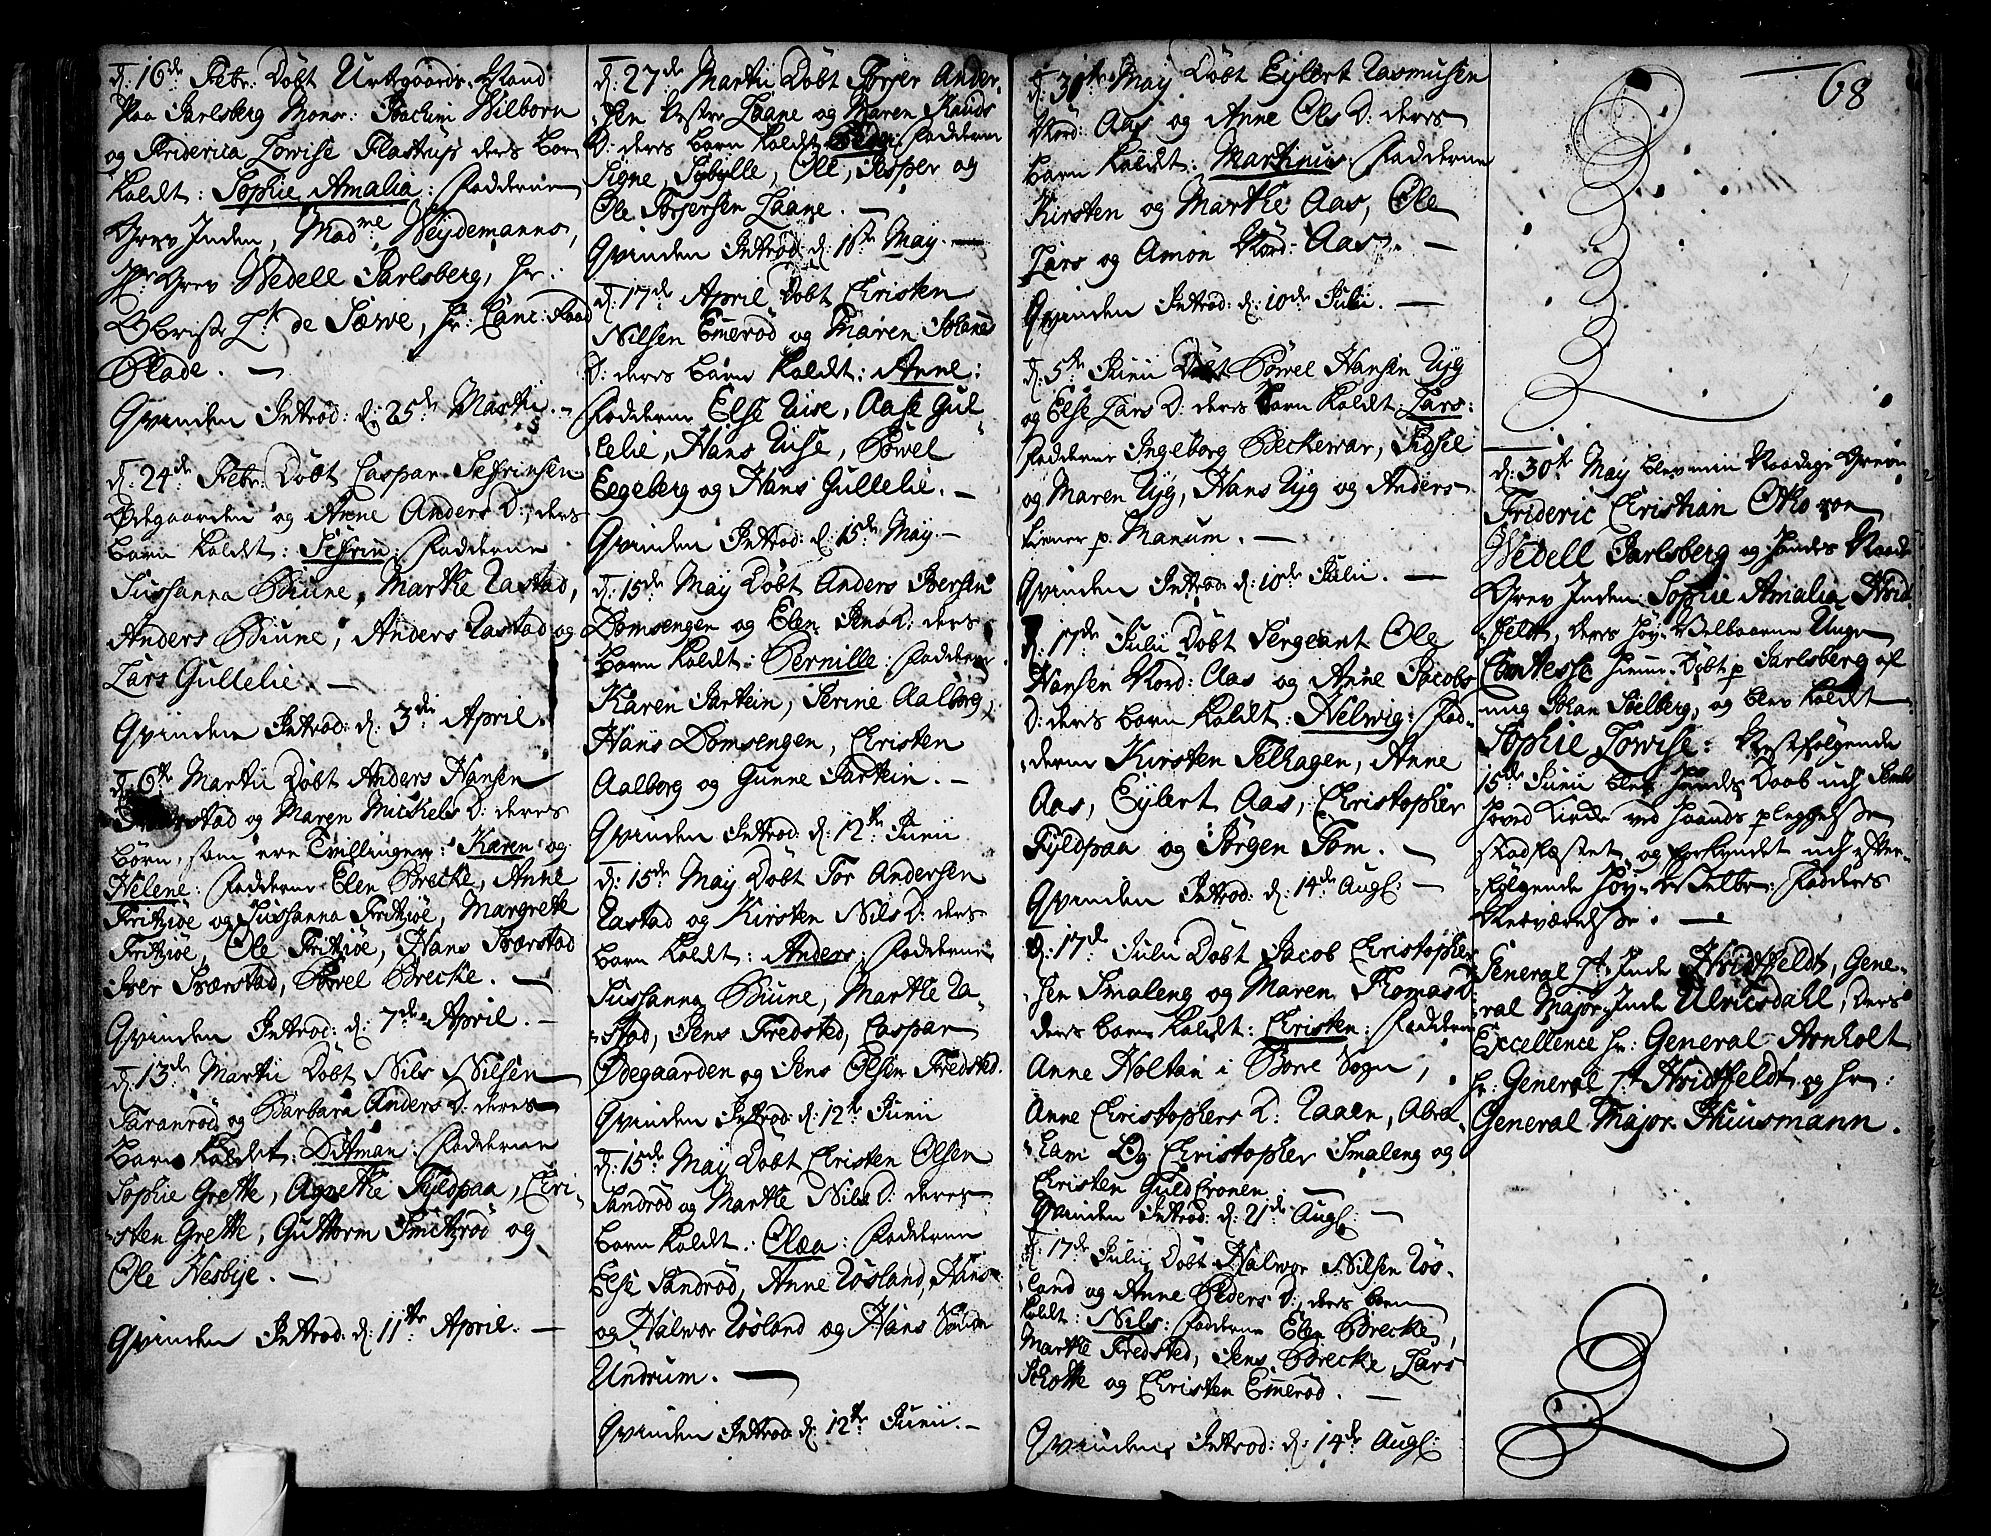 d: 16de Febr: Døbt Urtegaards Mand
Paa Jarlsberg Monsr: Joachim Wilborn
og Friderica Lowise Flastrup deres barn
kaldt: Sophie Amalia: Fadderne
Grev Inden, Madme Weydemanns,
Hr: Grev Wedell Jarlsberg, Hr:
Obrist Lt de Sæwe, Hr: Canc: Raad
Blade. —
Qvinden Introd: d: 25de Martii. —
d: 24de Febr: Døbt Caspar Sefrinsen
Ødegaarden og Anne Anders D:, deres
barn kaldt: Sefrin: Fadderne
Sussanna Biune, Marthe Rastad,
Anders Biune, Anders Rastad og
Lars Gullelie. —
Qvinden Introd: d: 3die April.
d: 6te Martii Døbt Anders Hansen
og Maren Mickels D: deres
børn, som ere Tvillinger: Karen og
Helene: Fadderne Elen Brecke, Anne
Fritzøe og Sussanna Fritzøe, Margrete
Fritzøe, Ole Fritzøe, Hans Sværstad
Iver Sværstad, Povel Brecke. —
Qvinden Introd: d: 7de April. —
d: 13de Martii Døbt Nils Nilsen
Faranrød og Barbara Anders D: deres
barn kaldet: Ditman: Fadderne
Sophie Grette, Agnethe Fyldpaa, Chri-
sten Grette, Guttorm Smitzrød og
Ole Nesbye. —
Qvinden Introd: d: 11te April. —
d: 27de Martii Døbt Torjer Ander-
sen Vestre Laane og Maren Knuds
D: deres barn kaldt Fadderne
Signe, Sybylle, Ole, Jesper og
Ole Torjersen Laane. —
Qvinden Introd: d: 1ste May. —
d: 17de April Døbt Christen
Nilsen Emerød og Maren Johans
D: deres barn kaldt: Anne:
Fadderne Else Riise, Aase Gul-
lelie, Hans Riise, Powel
Eegeberg og Hans Gullelie. —
Qvinden Introd: d: 15de May. —
d: 15de May Døbt Anders Iversen
Domsengen og Elen Jens D: deres
barn kaldt: Pernille: Fadderne
Karen Jartein, Serine Aalborg,
Hans Domsengen, Christen
Aalborg og Gunne Jartein. —
Qvinden Introd: d: 12te Junii
d: 15de May Døbt Tor Andersen
Rastad og Kirsten Nils D: deres
barn kaldt: Anders: Fadderne
Sussanna Biune, Marthe Ra-
stad, Jens Fredsted, Caspar
Ødegaarden og Jens Olsen Fredsted.
Qvinden Introd: d: 12te Junii
d: 15de May Døbt Christen Olsen
Sandrød og Marthe Nils D: deres
barn kaldt: Olea: Fadderne
Else Sandrød, Anne Røsland, Hans
og Halwor Røsland og Hans
Undrum. —
Qvinden Introd: d: 12te Junii. —
d: 30te May Døbt Eylert Rasmusen
Nord: Aas og Anne Ols D: deres
barn kaldt: Martinus: Fadderne
Kirsten og Marthe Aas, Ole
Lars og Amon Nord: Aas. —
Qvinden Introd: d: 10de Julii. —
d: 5te Junii Døbt Powel Hansen Ryg
og Else Lars D: deres barn kaldt: Lars:
Fadderne Ingeborg Beckewar, Sidsel
og Maren Ryg, Hans Ryg og Anders
tiener p. Manum. —
Qvinden Introd: d: 10de Julii. —
d: 17de Julii Døbt Sergeant Ole
Hansen Nord: Aas og Anne Jacobs
D: deres barn kaldt: Helwig: Fad-
derne Kirsten Telhagen, Anne
Aas, Eylert Aas, Christopher
Fyldpaa og Jørgen Tom. —
Qvinden Introd: d: 14de Aug: —
d: 17de Julii Døbt Jacob Christopher-
sen Smaleng og Maren Thomas D:
deres barn kaldt: Christen: Fadderne
Anne Holtan i Borre Sogn,
Anne Christophers D: Raaen, Abra-
ham og Christopher Smaleng og
Christen Guldcronen.
Qvinden Introd: d: 21de Aug: —
d: 17de Julii Døbt Halwor Nilsen Røs-
land og Anne Peders D:, deres barn
kaldt: Nils: Fadderne Elen Brecke,
Marthe Fredsted, Jens Brecke, Lars
Skotte og Christen Emerød. —
Qvinden Introd: d: 14de Aug:
68
d: 30te May blev min Naadige Greve
Frideric Christian Otto von
Wedell Jarlsberg og hendes Naade
Grev Inden Sophie Amalia Hvid-
feldt, deres Høy-Velbaarne Unge
Contesse hiemme Døbt p Jarlsberg af
mig Johan Sølberg, og blev kaldt
Sophie Lowise: Nestfølgende
15de Junii blev hendes Daab udi Sembs
Hoved Kirke ved Haands pleggelse
stadfæstet og forkyndet udi Efter-
følgende Høy-Velbr: Fadderes
Nerværelse. —
General Lt Inde Hvidtfeldt, Gene-
ral Major Inde Ulricsdahl, deres
Excellence Hr: General Arnholt
Hr: General Lt Hvidtfeldt og Hr:
General Major Huusmann.